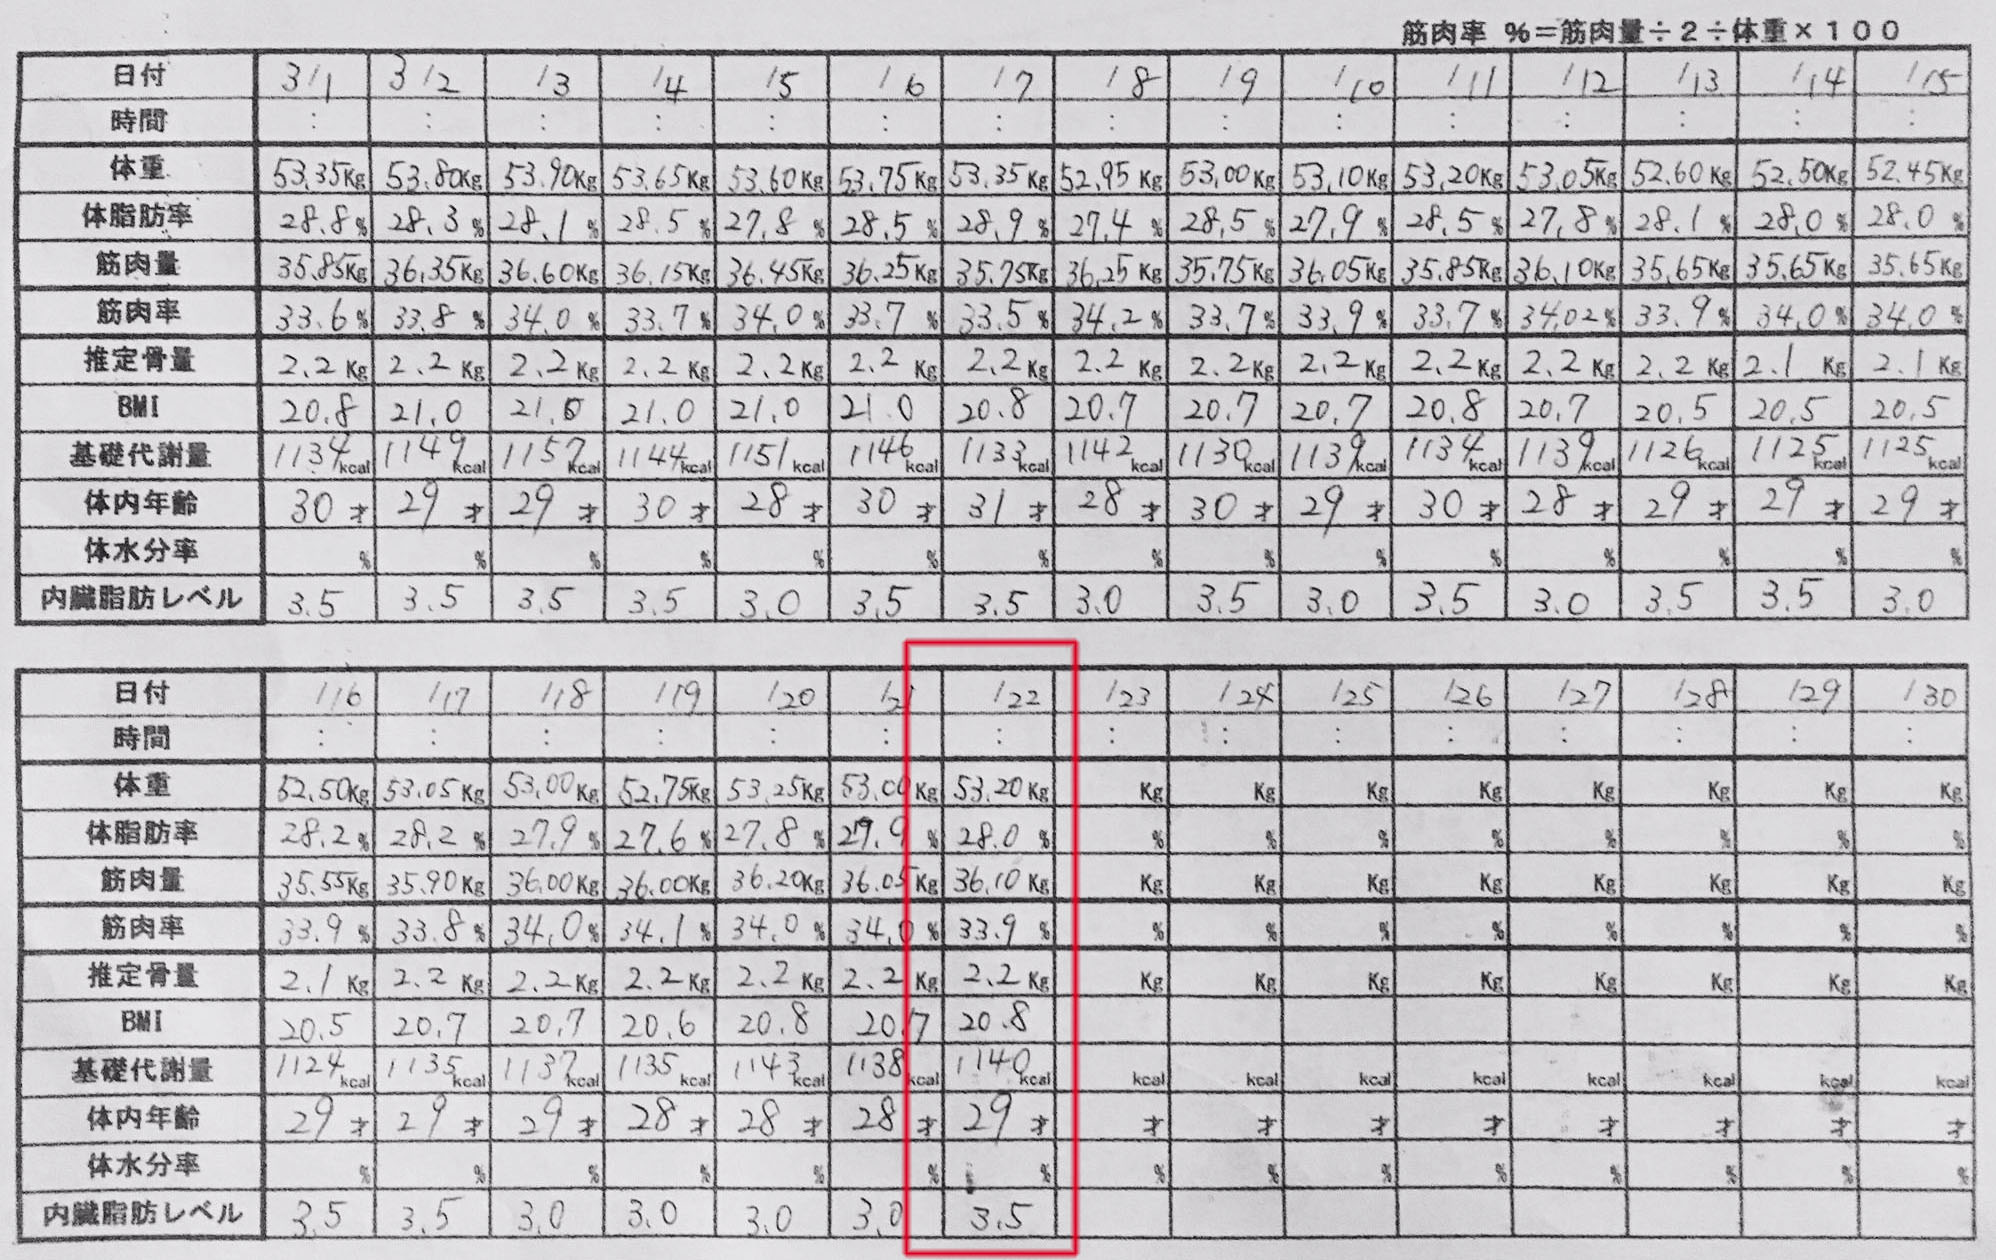 筋肉率 %=筋肉量÷2÷体重×100
日付 3/1 3/2 /3 /4 /5 /6 /7 /8 /9 /10 /11 /12 /13 /14 /15
時間 : : : : : : : : : : : : : : :
体重 53.35Kg 53.80Kg 53.90Kg 53.65Kg 53.60Kg 53.75Kg 53.35Kg 52.95Kg 53.00Kg 53.10Kg 53.20Kg 53.05Kg 52.60Kg 52.50Kg 52.45Kg
体脂肪率 28.8% 28.3% 28.1% 28.5% 27.8% 28.5% 28.9% 27.4% 28.5% 27.9% 28.5% 27.8% 28.1% 28.0% 28.0%
筋肉量 35.85Kg 36.35Kg 36.60Kg 36.15Kg 36.45Kg 36.25Kg 35.75Kg 36.25Kg 35.75Kg 36.05Kg 35.85Kg 36.10Kg 35.65Kg 35.65Kg 35.65Kg
筋肉率 33.6% 33.8% 34.0% 33.7% 34.0% 33.7% 33.5% 34.2% 33.7% 33.9% 33.7% 34.02% 33.9% 34.0% 34.0%
推定骨量 2.2Kg 2.2Kg 2.2Kg 2.2Kg 2.2Kg 2.2Kg 2.2Kg 2.2Kg 2.2Kg 2.2Kg 2.2Kg 2.2Kg 2.2Kg 2.1Kg 2.1Kg
BMI 20.8 21.0 21.0 21.0 21.0 21.0 20.8 20.7 20.7 20.7 20.8 20.7 20.5 20.5 20.5
基礎代謝量 1134kcal 1149kcal 1157kcal 1144kcal 1151kcal 1146kcal 1133kcal 1142kcal 1130kcal 1139kcal 1134kcal 1139kcal 1126kcal 1125kcal 1125kcal
体内年齢 30才 29才 29才 30才 28才 30才 31才 28才 30才 29才 30才 28才 29才 29才 29才
体水分率 % % % % % % % % % % % % % % %
内臓脂肪レベル 3.5 3.5 3.5 3.5 3.0 3.5 3.5 3.0 3.5 3.0 3.5 3.0 3.5 3.5 3.0
日付 /16 /17 /18 /19 /20 /21 /22 /23 /24 /25 /26 /27 /28 /29 /30
時間 : : : : : : : : : : : : : : :
体重 52.50Kg 53.05Kg 53.00Kg 52.75Kg 53.25Kg 53.00Kg 53.20Kg Kg Kg Kg Kg Kg Kg Kg Kg
体脂肪率 28.2% 28.2% 27.9% 27.6% 27.8% 27.9% 28.0% % % % % % % % %
筋肉量 35.55Kg 35.90Kg 36.00Kg 36.00Kg 36.20Kg 36.05Kg 36.10Kg Kg Kg Kg Kg Kg Kg Kg Kg
筋肉率 33.9% 33.8% 34.0% 34.1% 34.0% 34.0% 33.9% % % % % % % % %
推定骨量 2.1Kg 2.2Kg 2.2Kg 2.2Kg 2.2Kg 2.2Kg 2.2Kg Kg Kg Kg Kg Kg Kg Kg Kg
BMI 20.5 20.7 20.7 20.6 20.8 20.7 20.8
基礎代謝量 1124kcal 1135kcal 1137kcal 1135kcal 1143kcal 1138kcal 1140kcal kcal kcal kcal kcal kcal kcal kcal kcal
体内年齢 29才 29才 29才 28才 28才 28才 29才 才 才 才 才 才 才 才 才
体水分率 % % % % % % % % % % % % % % %
内臓脂肪レベル 3.5 3.5 3.0 3.0 3.0 3.0 3.5